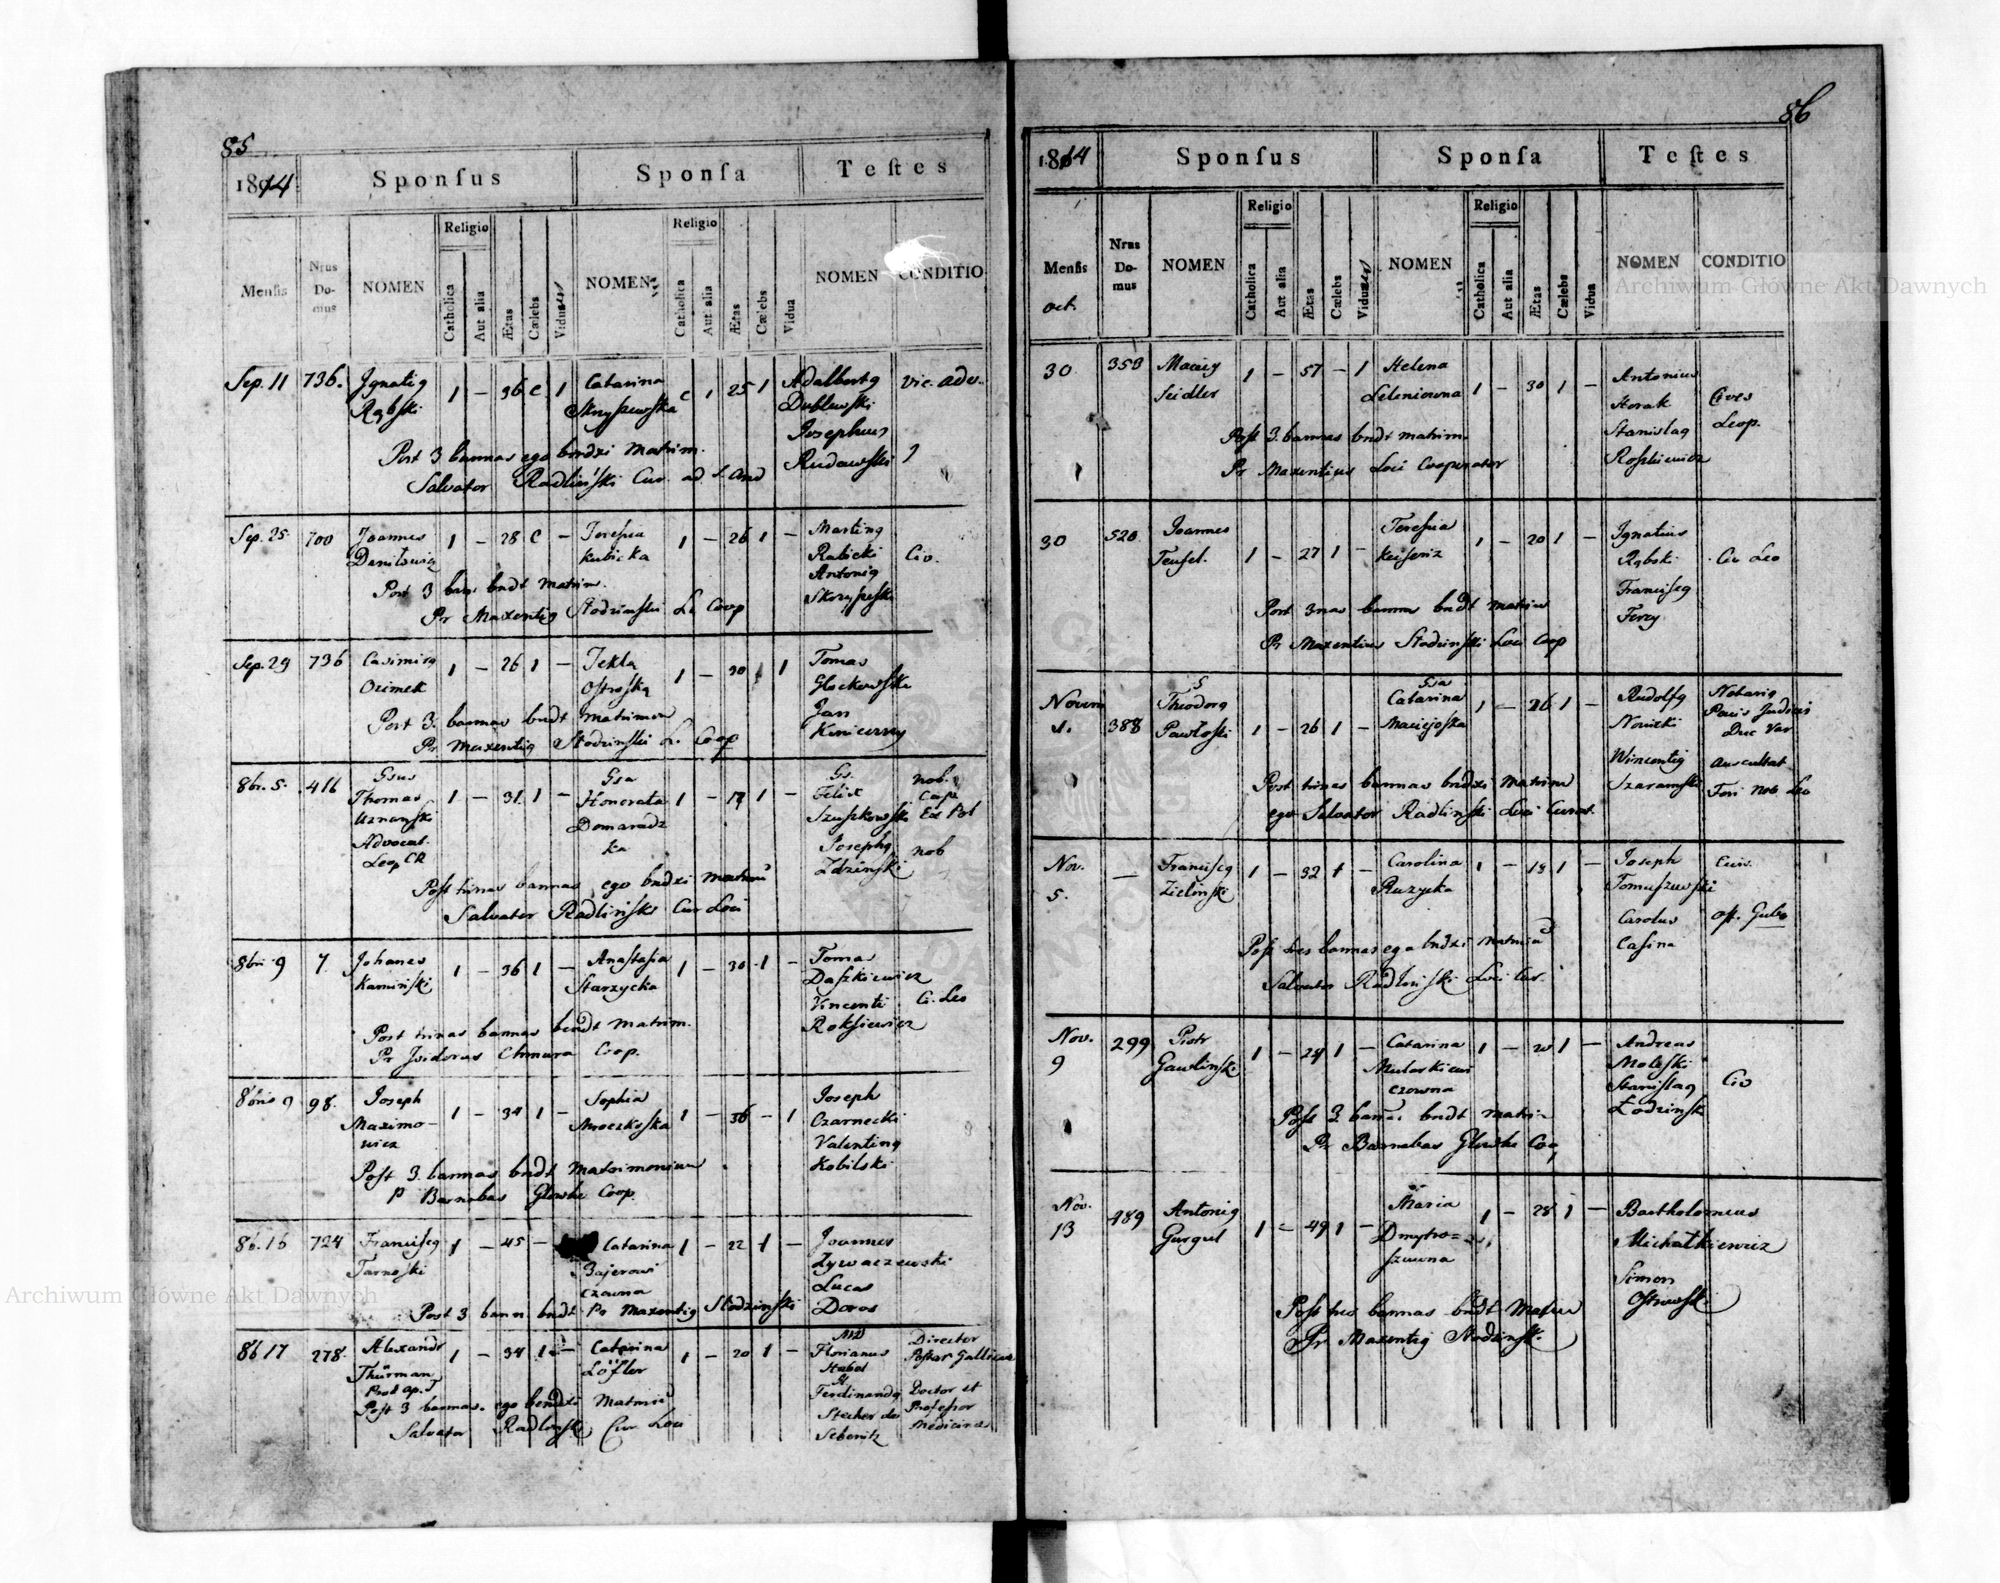 85
1814
Sponſus
Sponſa
Teſtes
Menſis
Nrus
Do-
mus
NOMEN
Religio
Catholica
Aut alia
Ætas
Cælebs
Viduus
NOMEN
Religio
Catholica
Aut alia
Ætas
Cælebs
Vidua
NOMEN
CONDITIO
Sep. 11 736. Ignatig 1 – 36 c 1 Catarina c 1 25 1 Adalbertg vic. adv.
Rąbſki Skryſzewſka Dublewſki
Josephus
Post 3 bannas ego bndxi Matrim. Rudawſki
Salvator Radlińſki Cur. ad S. And
Sep. 25 700 Joannes 1 – 28 c – Tereſia 1 – 26 1 – Marting
Daniłowicz Kubicka Rabicki Civ.
Antonig
Post 3 ban bndt Matrim. Skoryp
Pr Maxentig Stodzinski L. Coop
Sep. 29 736 Casimirg 1 – 26 1 – Tekla 1 – 30 1 Tomas
Ozimek Oſtroſka Glockowſki
Jan
Post 3. bannas bndt Matrimon
Pr Maxentig Stodzinski L. Coop
8br. 5. 416 Gsus 1 – 31. 1 – Gsa 1 – 17 1 – Gs. nob.
Thomas Honorata Felix Cap
Uznanſki Domaradz Szuſzkowſki Ex Pol
Advocat. ka Josephg nob
Leop CR Zdzinſki
Poſt trinas bannas ego bndxi matrim
Salvator Radlińſki Cur Loci
8bri 9 7. Johanes 1 – 36 1 – Anaſtaſia 1 – 30 1 – Tomas
Kaminſki Starzycka Daſzkiewicz
Vincenti Ci. Leo
Rokſiewicz
Post trinas bannas bendt Matrim.
Pr Iſidorus Chmura Coop.
8bris 9 98. Joseph 1 – 34 1 – Sophia 1 – 36 – 1 Joseph
Maximo- Mroczkoſka Czarnecki
wicz Valenting
Poſt 3. bannas bndt Matrimonium Kobilski
P Barnabas Glowke Coop.
8b. 16 724 Franciſcg 1 – 45 – Catarina 1 – 22 1 – Joannes
Tarnoſki Bajerowi Zywaczewski
czowna Lucas
Post 3 bann bndt Pr Maxentig Stodzinſki Doros
8b 17 278. Alexandr 1 – 34 1 – Catarina 1 – 20 1 – Director
Thürman Löfler Florianus Poſtar Gallicia
Habel
Ferdinandg Doctor et
Poſt 3 bannas. ego bendxi Matrim Stecher de Profeſſor
Salvator Radlinſki Cur Loci Sebenitz Medicinae
86
1814
Sponſus
Sponſa
Teſtes
Menſis
oct.
Nrus
Do-
mus
NOMEN
Religio
Catholica
Aut alia
Ætas
Cælebs
Viduus
NOMEN
Religio
Catholica
Aut alia
Ætas
Cælebs
Vidua
NOMEN
CONDITIO
30 353 Maciey 1 – 57 – 1 Helena 1 – 30 1 – Antonius
Seidler Leleniowna Horak Cives
Stanislag Leop.
Poſt 3. bannas bndt matrim. Roſzkiewicz
Pr Maxentius Loci Cooperator
30 520 Joannes 1 – 27 1 – Tereſia 1 – 20 1 – Ignatius
Teufel. Rąbski Civ Leo
Franciſcg
Post 3nas bannas bndt matrim
Pr Maxentius Stodzinſki Loci Coop
Novem 388 Theodorg 1 – 26 1 – Catarina 1 – 26 1 – Rudolfg Notarig
1. Pawłoſki Maciejoſka Nowicki
Wincentig auscultat
Post trinas bannas bndxi Matrim Szaramſki Fori nob Leo
ego Salvator Radlinſki Loci Curat.
Nov. – Franciſcg 1 – 32 1 – Carolina 1 – 19 1 – Joseph Civis.
5. Zielinſki Ruzycka Tomaszewſki
Carolus off. Gub
Casina
Poſt tres bannas ego bndxi Matrim
Salvator Radlinſki Loci Cur.
Nov. 299 Piotr 1 – 24 1 – Catarina 1 – 20 1 – Andreas
9 Gawlinſki Mularkiewi Moleſki
czowna Staniſlag Civ
Poſt 3 bannas bndt matri Łodzinſki
Pr Barnabas Glowke Coo
Nov. 489 Antonig 1 – 49 1 – Maria 1 – 28 1 – Bartholomeus
13 Gurgul Dmytro= Michałkiewicz
szowna Simon
Poſt tres bannas bndt Matrim Oſtrowſki
Pr Maxentig Stodzinſki.
Archiwum Główne Akt Dawnych
Archiwum Główne Akt Dawnych